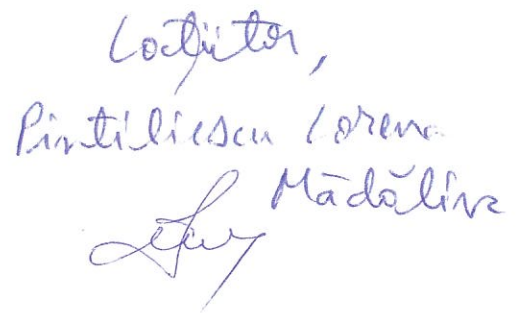 Locțiitor,
Pintiliescu Lorena
Mădălina